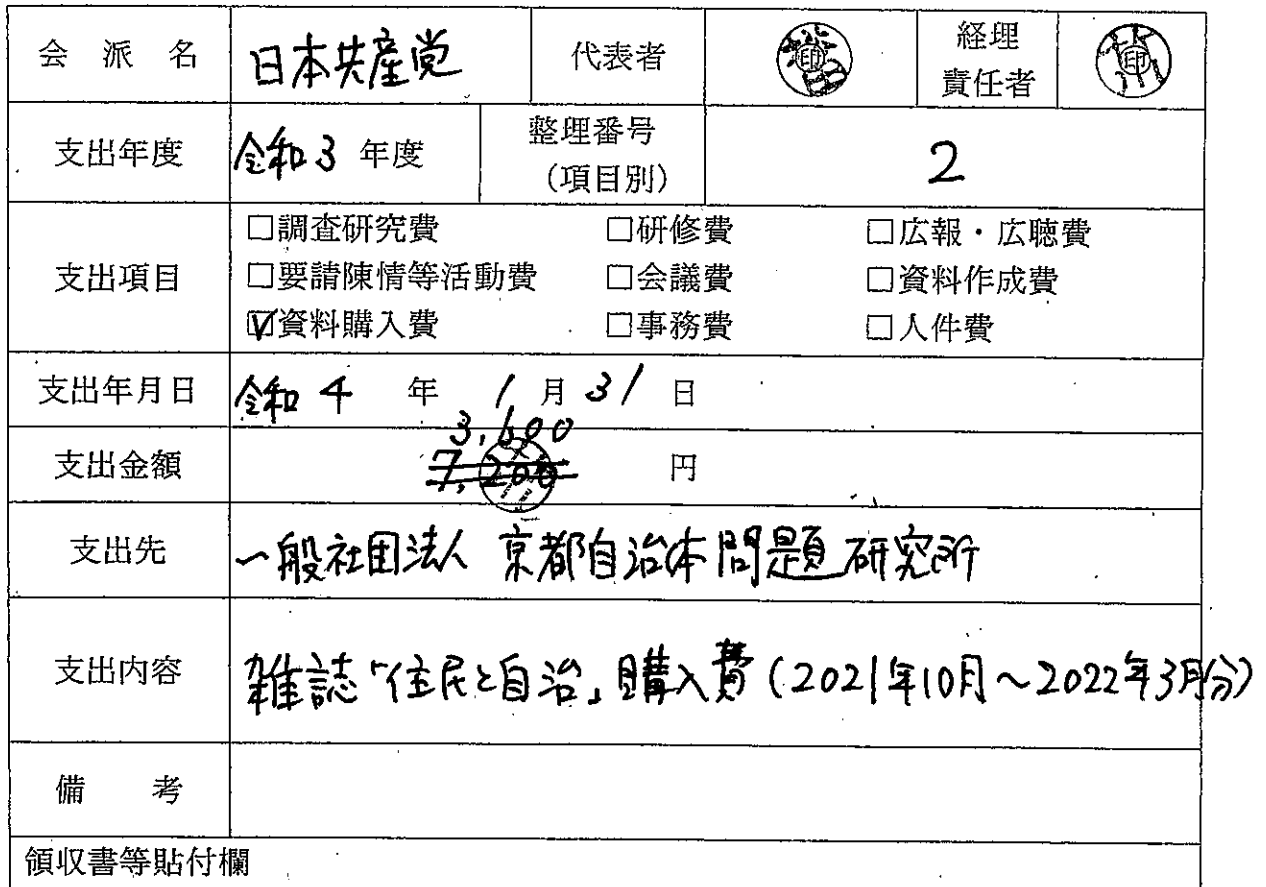 会派名 日本共産党 代表者 印 経理責任者 印
支出年度 令和3年度 整理番号(項目別) 2
支出項目
□調査研究費 □研修費 □広報・広聴費
□要請陳情等活動費 □会議費 □資料作成費
☑資料購入費 □事務費 □人件費
支出年月日 令和4年1月31日
3,600
支出金額 7,200 円
支出先 一般社団法人 京都自治体問題研究所
支出内容 雑誌「住民と自治」購入費(2021年10月~2022年3月分)
備考
領収書等貼付欄